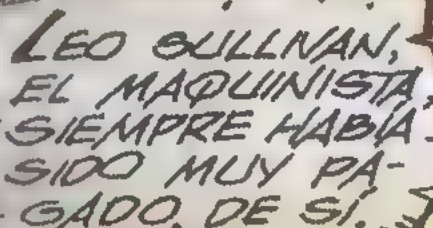 LEO SULLIVAN,
EL MAQUINISTA,
SIEMPRE HABÍA
SIDO MUY PA-
GADO. DE SÍ.